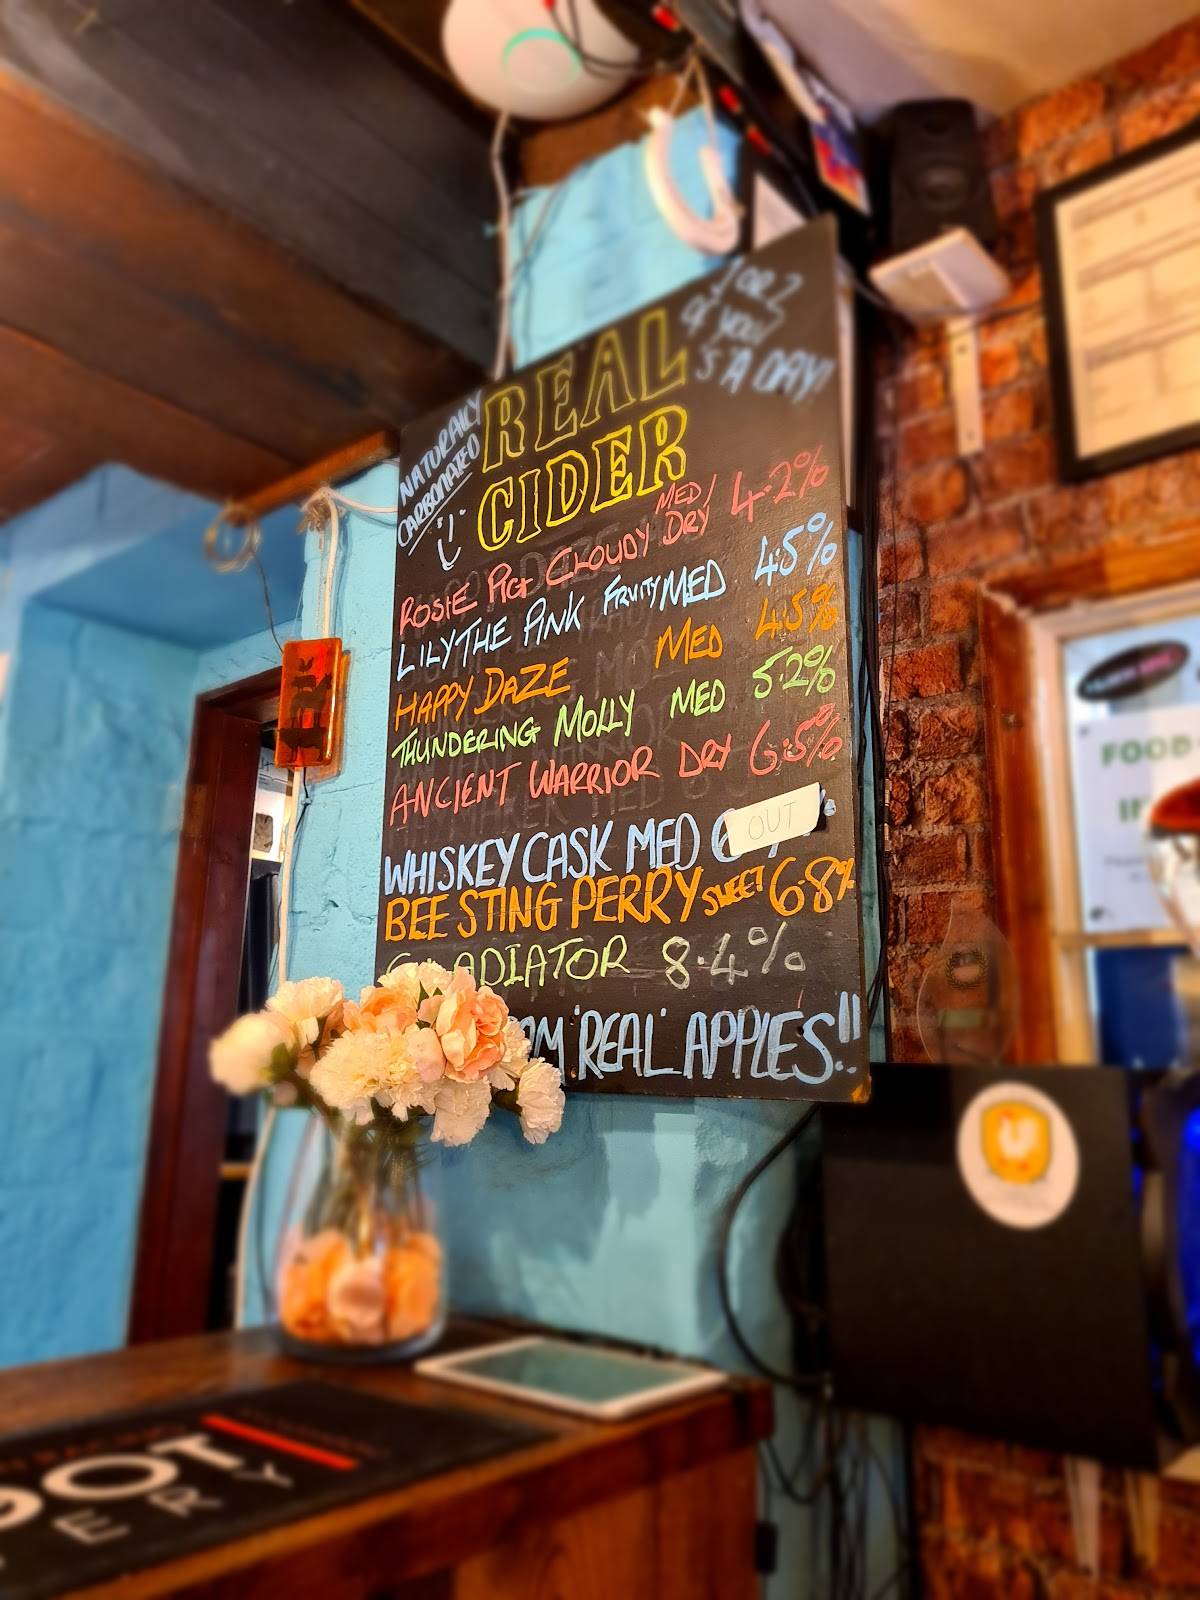 1 OR 2
of your
5 A DAY!
NATURALLY
CARBONATED
REAL
CIDER
ROSIE PIG CLOUDY MED/DRY 4.2%
LILY THE PINK FRUITY MED 4.5%
HAPPY DAZE MED 4.5%
THUNDERING MOLLY MED 5.2%
ANCIENT WARRIOR DRY 6.5%
WHISKEY CASK MED
OUT
BEE STING PERRY SWEET 6.8%
GLADIATOR 8.4%
'REAL' APPLES!!
FOOD